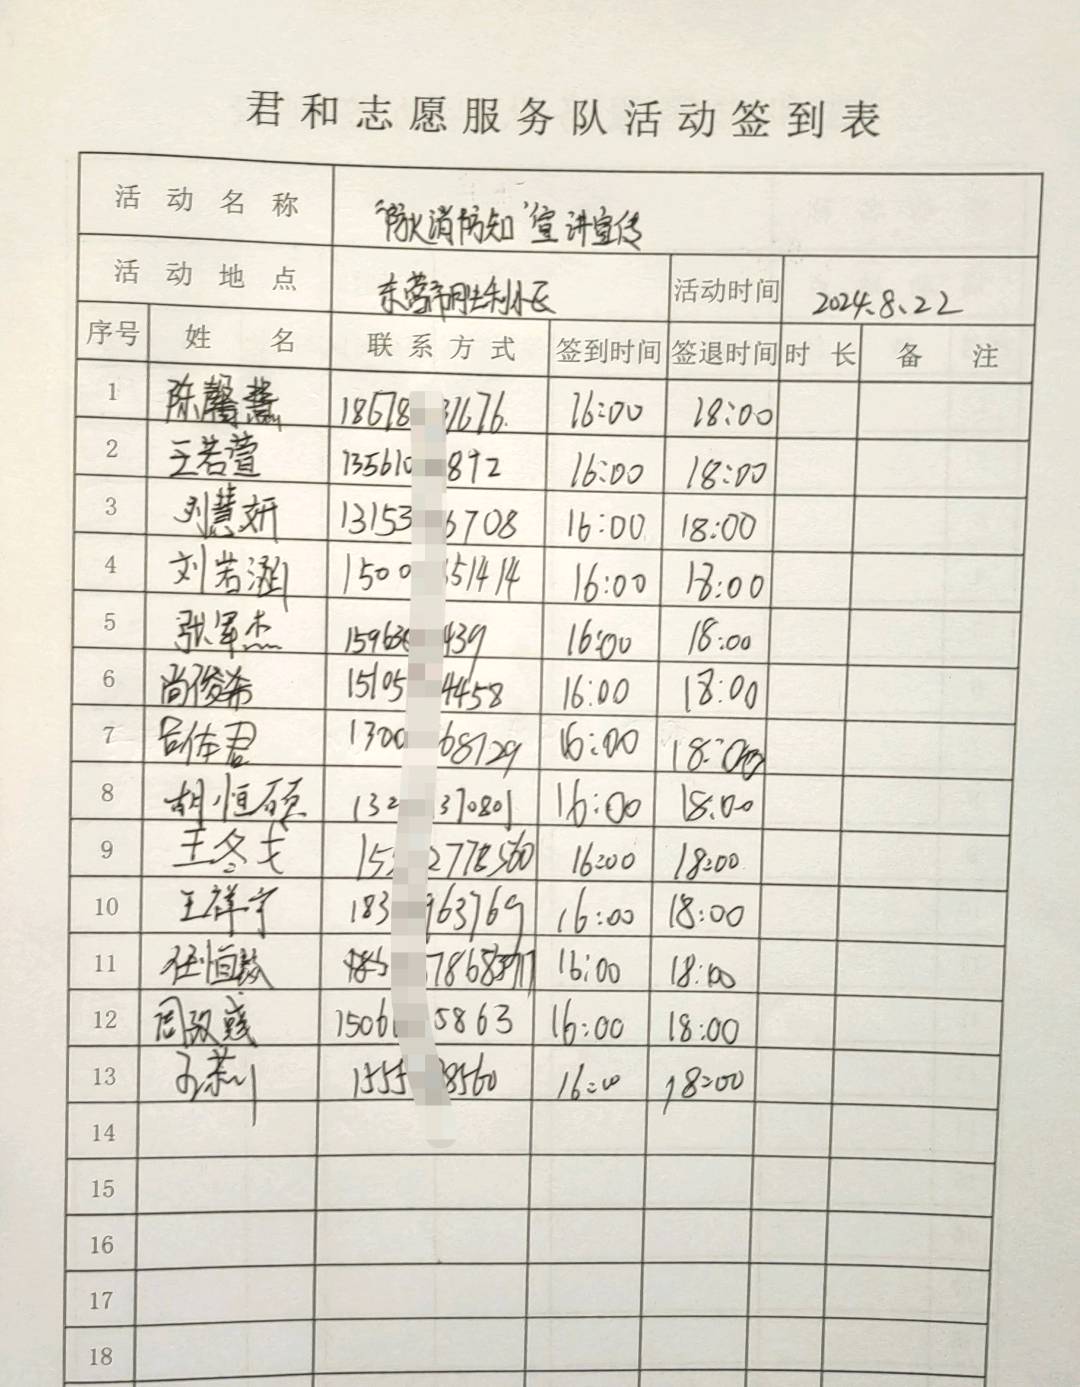 君和志愿服务队活动签到表
活动名称 "防火消防知"宣讲宣传
活动地点 东营市胜利小区 活动时间 2024.8.22
序号 姓名 联系方式 签到时间 签退时间 时长 备注
1 陈馨慧 18678 31676 16:00 18:00
2 王若萱 135610 892 16:00 18:00
3 刘慧妍 13153 6708 16:00 18:00
4 刘若涵 1500 51414 16:00 18:00
5 张军杰 15963 439 16:00 18:00
6 尚俊希 15105 4458 16:00 18:00
7 1300 68729 16:00 18:00
8 胡恒硕 132 370801 16:00 18:00
9 王冬 15 2778560 16:00 18:00
10 王祥宇 183 963769 16:00 18:00
11 任恒毅 16:00 18:00
12 周 15066 5863 16:00 18:00
13 1555 8560 16:00 18:00
14
15
16
17
18